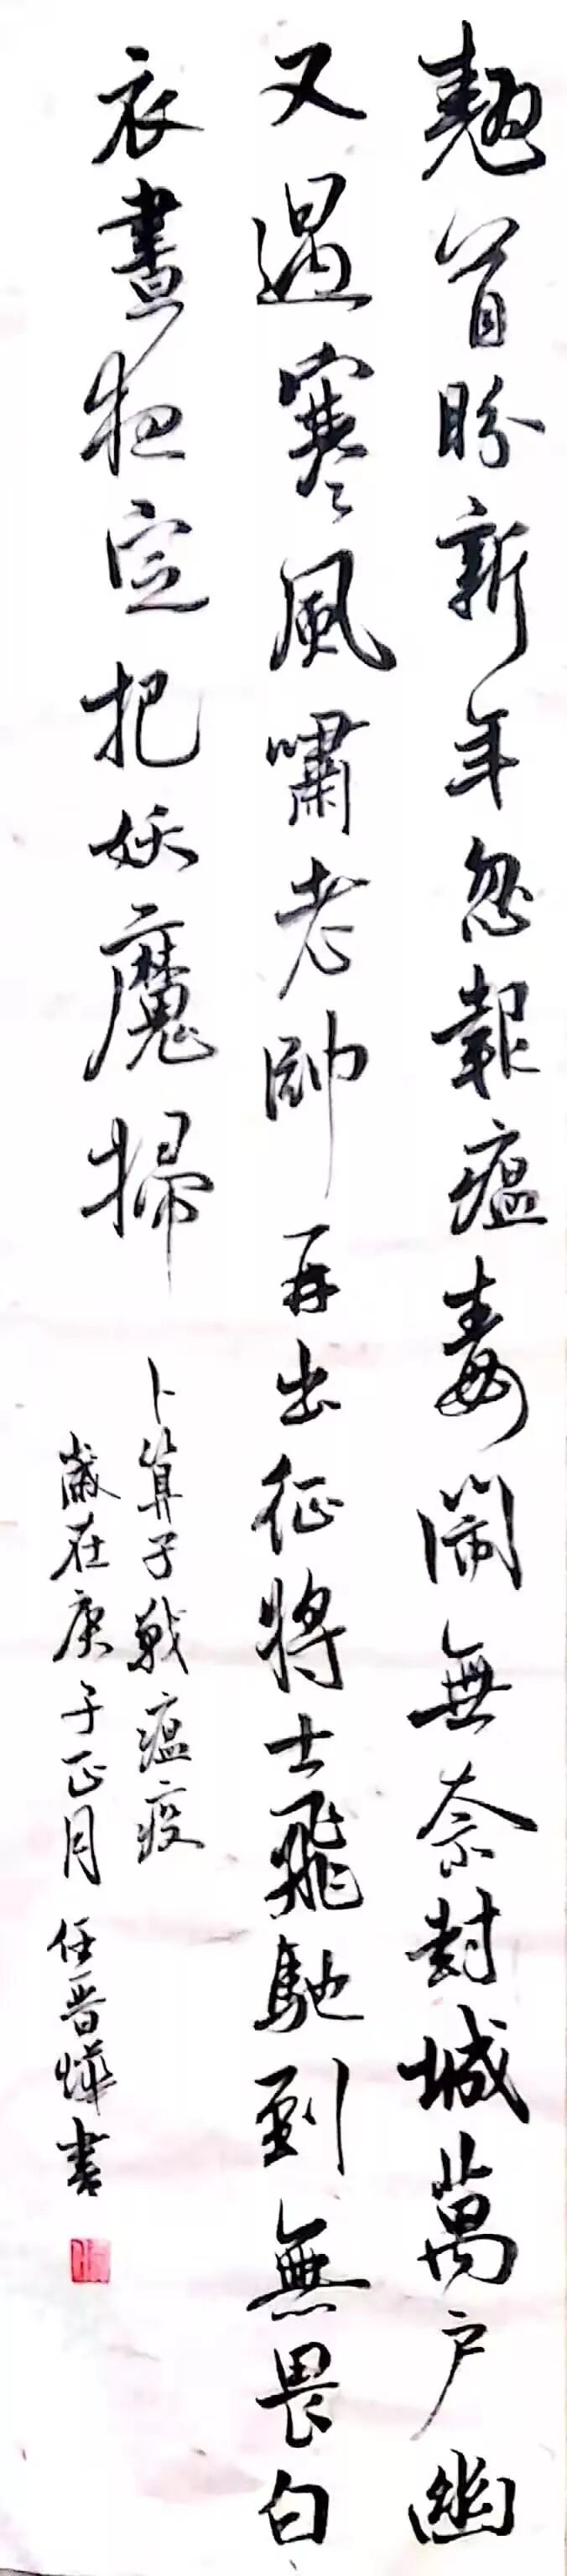 翹首盼新年忽報瘟毒鬧無奈封城萬户幽
又遇寒風嘯老帥再出征將士飛馳到無畏白
衣晝夜定把妖魔掃
卜算子戰瘟疫
歲在庚子正月任晋燁書